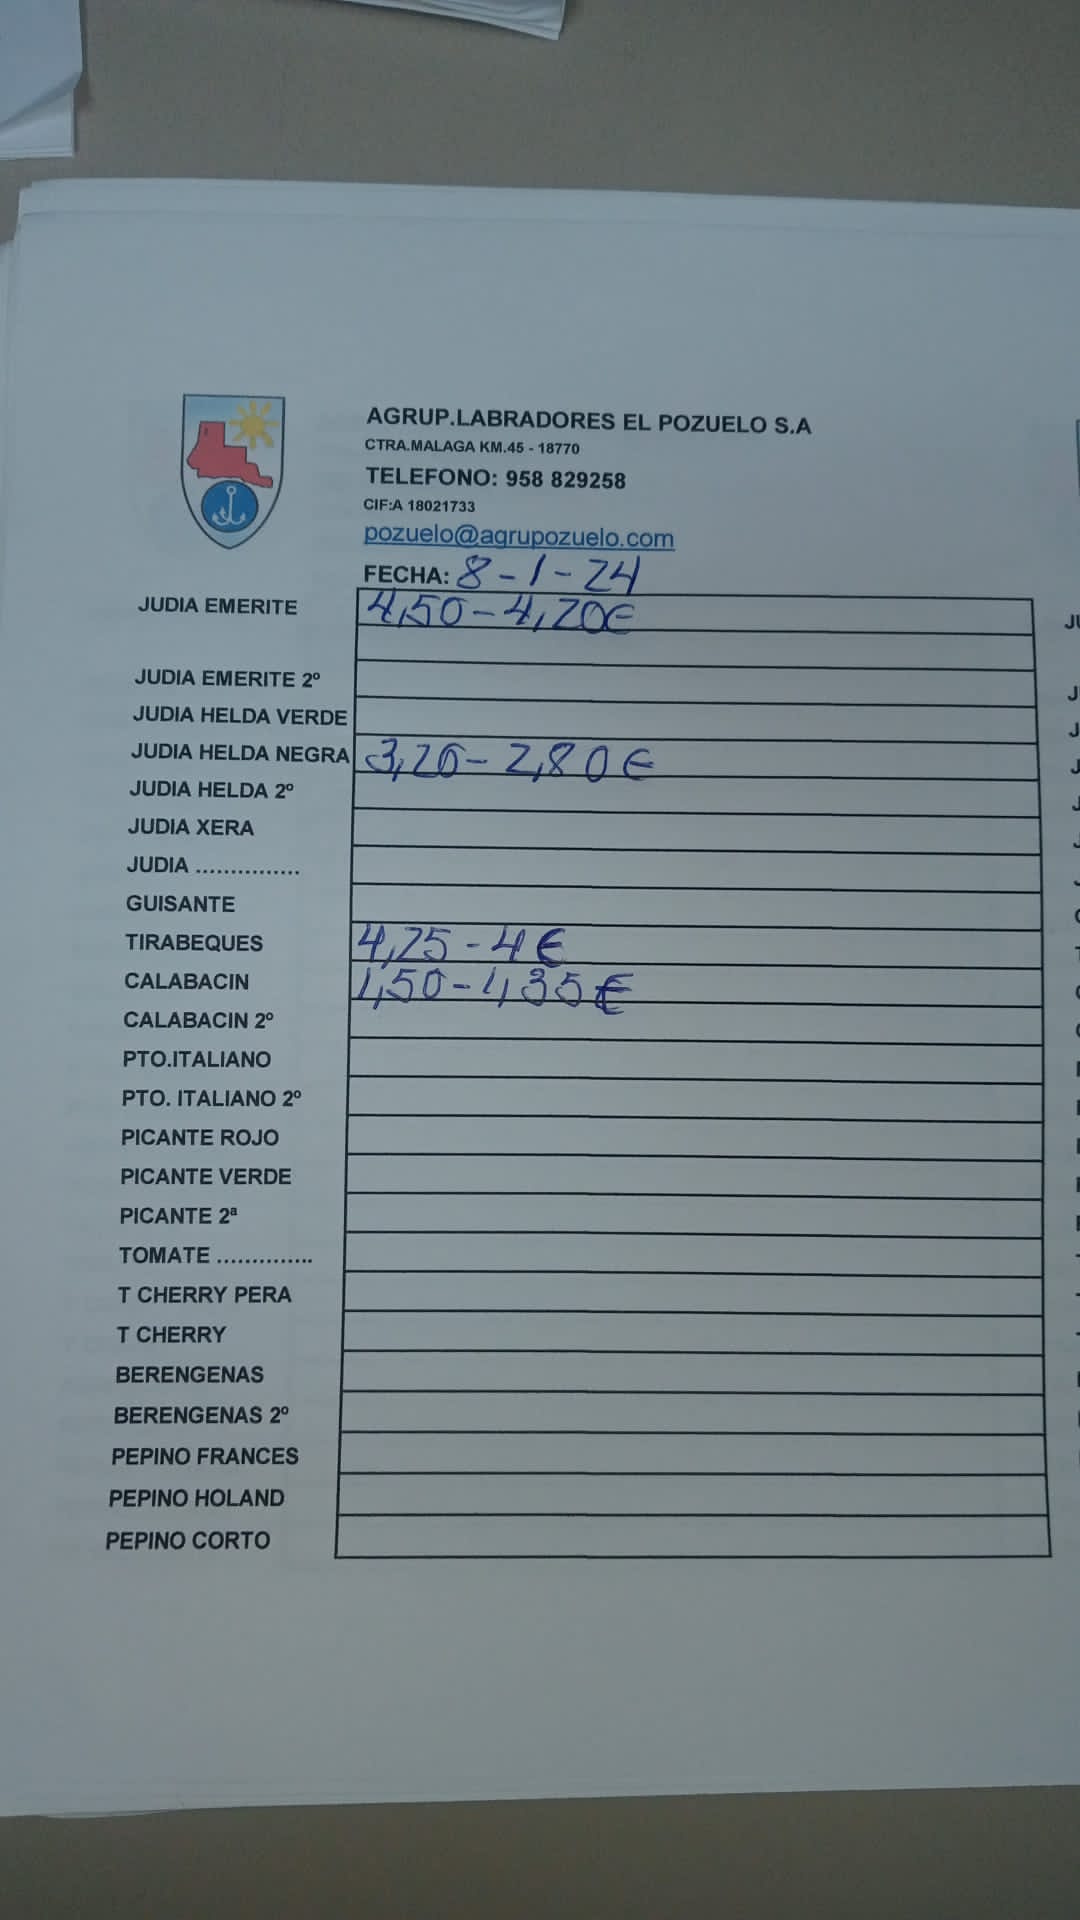 AGRUP.LABRADORES EL POZUELO S.A
CTRA.MALAGA KM.45 - 18770
TELEFONO: 958 829258
CIF:A 18021733
pozuelo@agrupozuelo.com
FECHA: 8-1-24
JUDIA EMERITE 4,50-4,20€
JUDIA EMERITE 2º
JUDIA HELDA VERDE
JUDIA HELDA NEGRA 3,20-2,80€
JUDIA HELDA 2º
JUDIA XERA
JUDIA ...............
GUISANTE
TIRABEQUES 4,25-4€
CALABACIN 1,50-1,35€
CALABACIN 2º
PTO.ITALIANO
PTO. ITALIANO 2º
PICANTE ROJO
PICANTE VERDE
PICANTE 2ª
TOMATE ..............
T CHERRY PERA
T CHERRY
BERENGENAS
BERENGENAS 2º
PEPINO FRANCES
PEPINO HOLAND
PEPINO CORTO